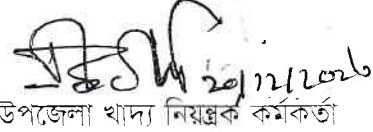 20/12/2020
উপজেলা খাদ্য নিয়ন্ত্রক কর্মকর্তা